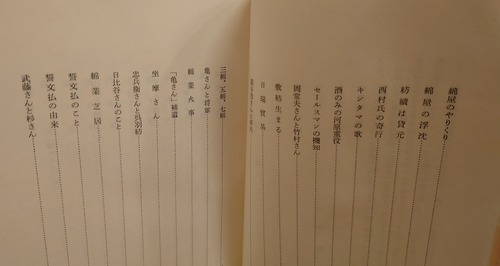 綿屋のやりくり
綿屋の浮沈
紡績は貸元
西村氏の奇行
キンタマの歌
酒のみの河原重役
セールスマンの機知
岡常夫さんと竹村さん
敷紡生まる
自陽貿易
三綿、五綿、七綿
亀さんと将軍
綿業火事
「亀さん」補遺
坐摩さん
忠兵衛さんと呉羽紡
日比谷さんのこと
綿業芝居
誓文払のこと
誓文払の由来
武藤さんと杉さん